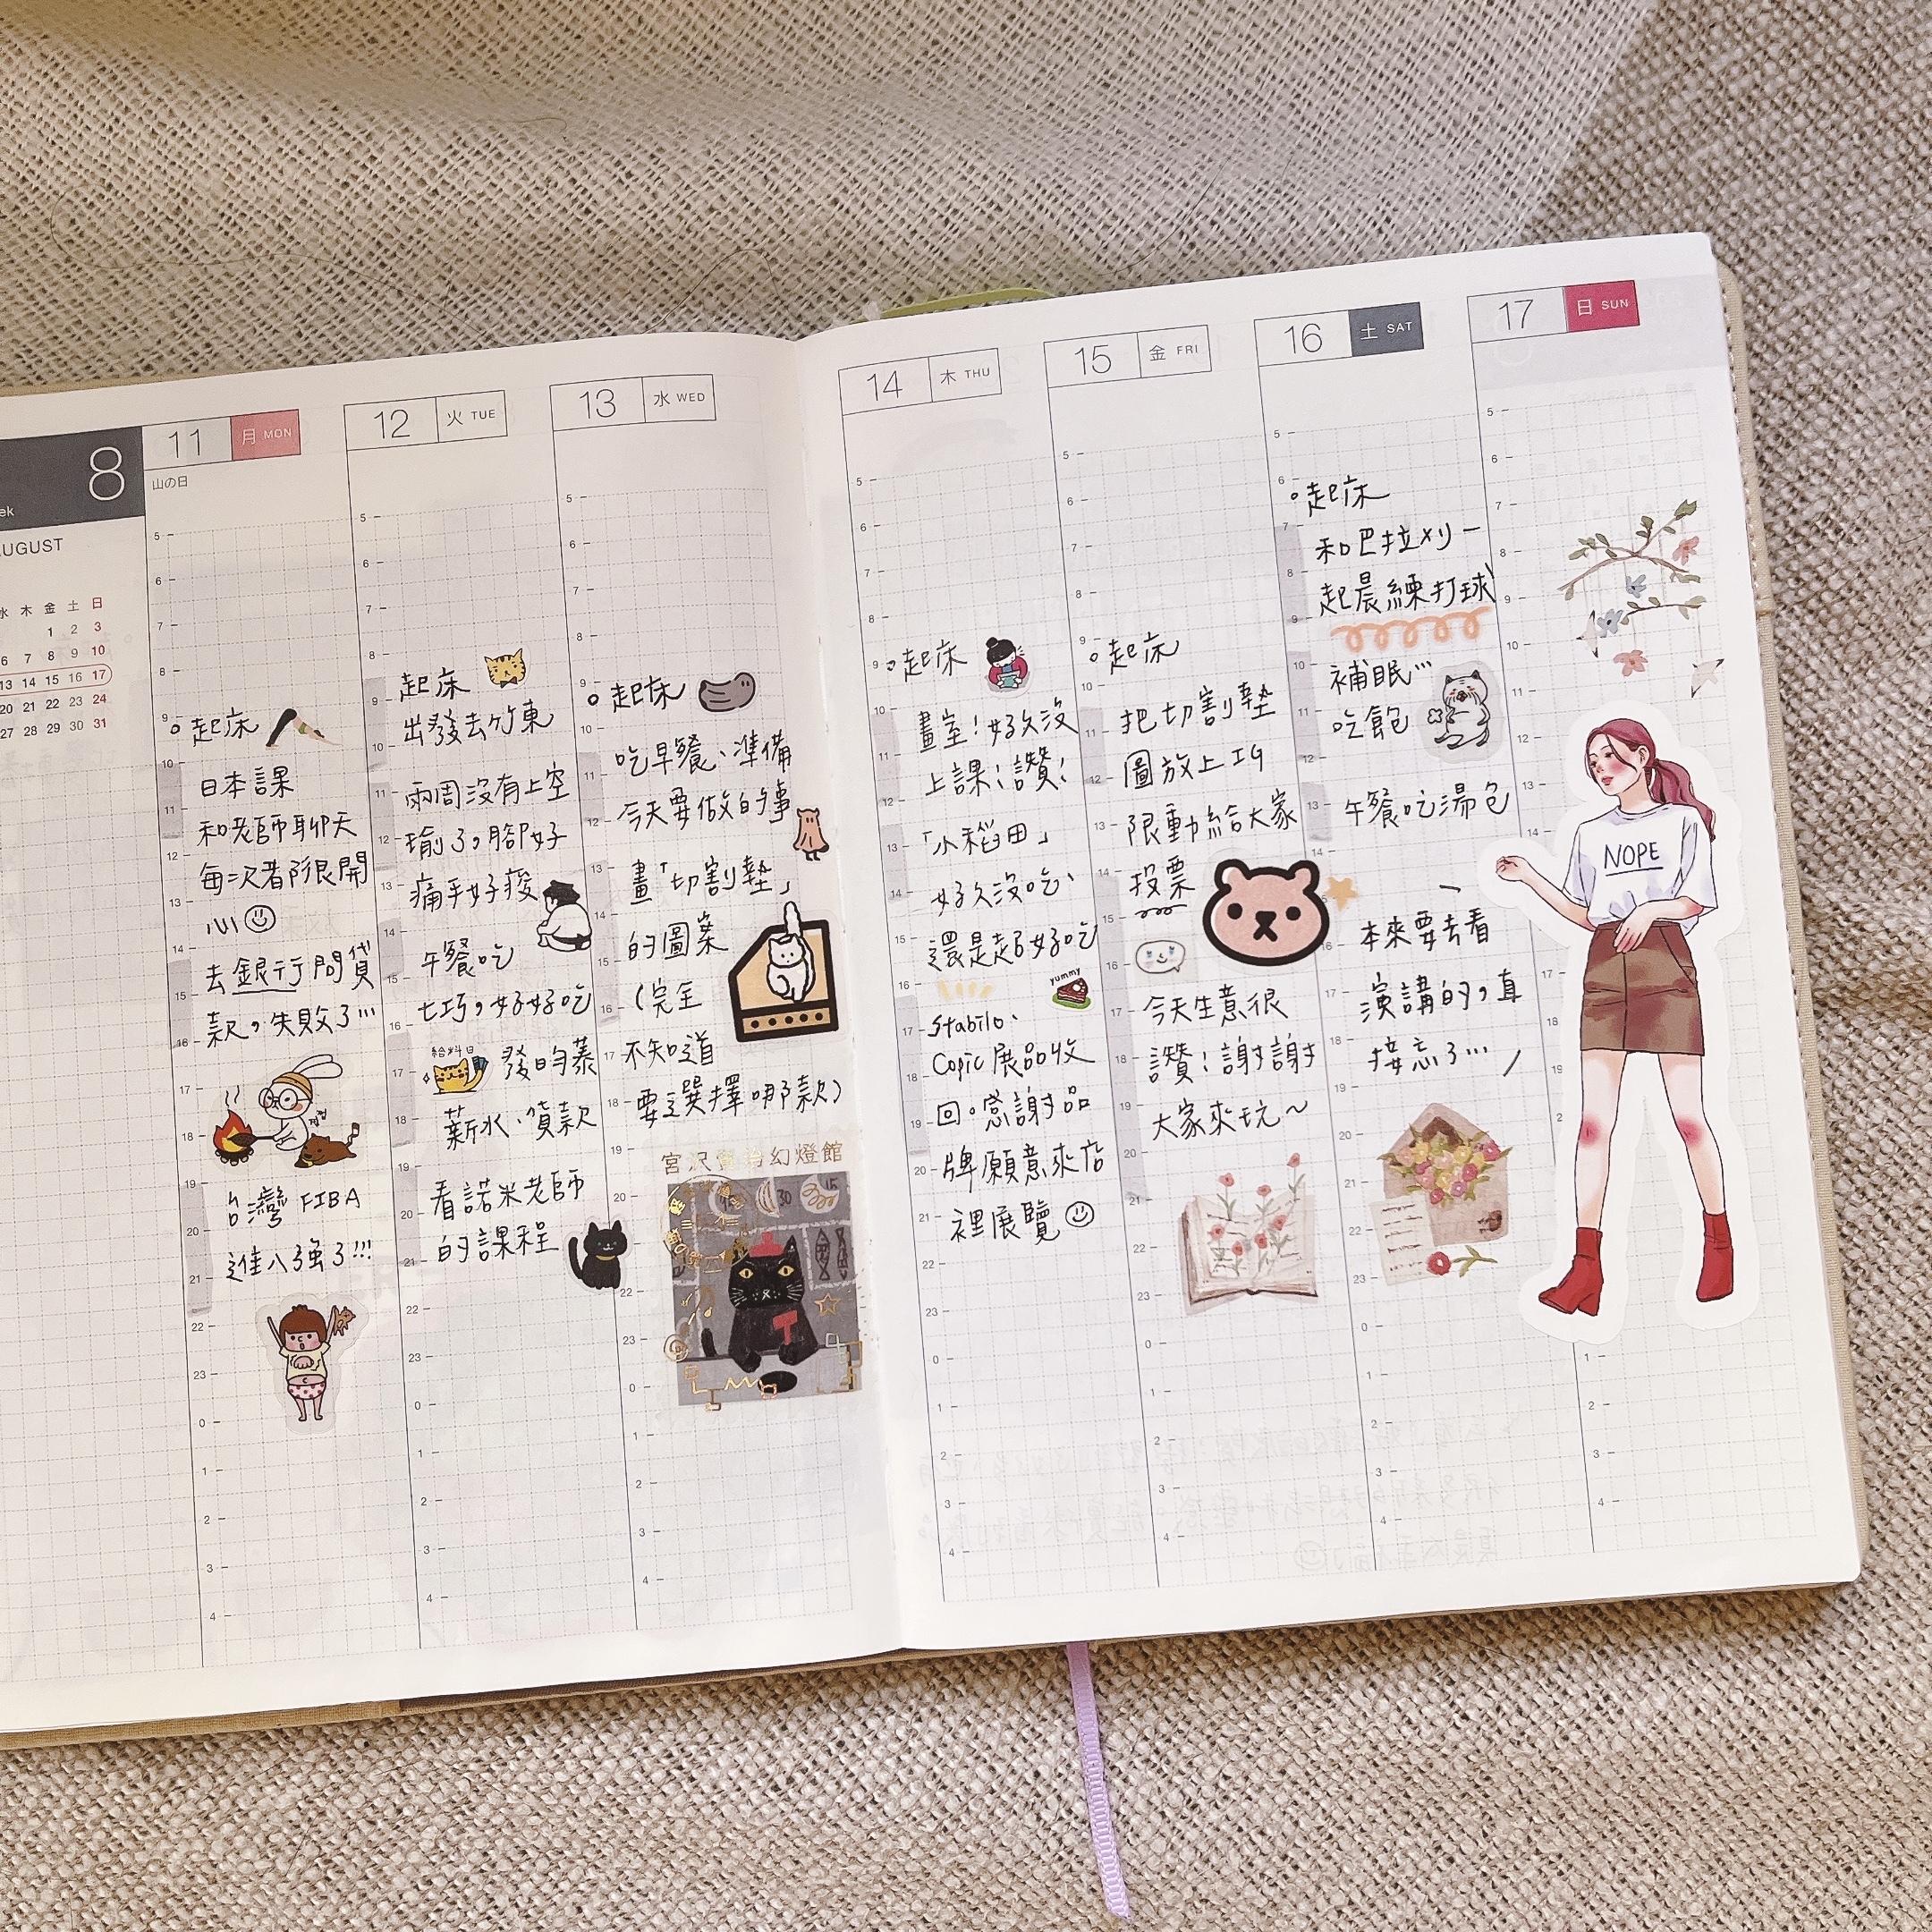 8
AUGUST
水 木 金 土 日
1 2 3
6 7 8 9 10
13 14 15 16 17
20 21 22 23 24
27 28 29 30 31
11 月 MON
山の日
起床
日本課
和老師聊天
每次都很開
心
去銀行問貸
款,失敗了…
台灣 FIBA
進八強了!!!
12 火 TUE
起床
出發去竹東
兩周沒有上空
瑜了,腳好
痛手好痠
午餐吃
七巧,好好吃
給料日
發昀蓁
薪水、貨款
看諾米老師
的課程
13 水 WED
起床
吃早餐、準備
今天要做的事
畫「切割墊」
的圖案
(完全
不知道
要選擇哪款)
宮沢賢治幻燈館
14 木 THU
起床
畫室!好久沒
上課!讚!
「小稻田」
好久沒吃、
還是超好吃
yummy
Stabilo、
Copic 展品收
回。感謝品
牌願意來店
裡展覽
15 金 FRI
起床
把切割墊
圖放上IG
限動給大家
投票
今天生意很
讚!謝謝
大家來玩~
16 土 SAT
起床
和巴拉刈一
起晨練打球
補眠…
吃飽
午餐吃湯包
本來要去看
演講的,直
接忘了…
17 日 SUN
NOPE